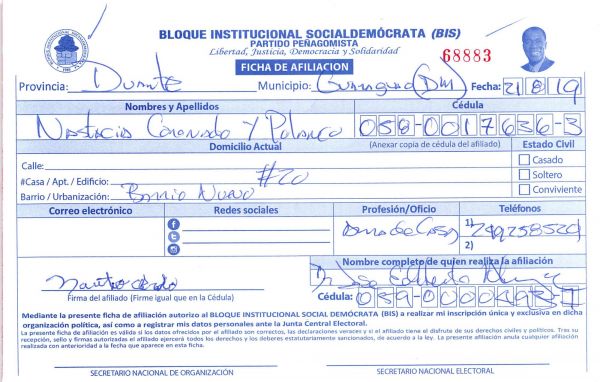 BLOQUE INSTITUCIONAL SOCIALDEMÓCRATA (BIS)
PARTIDO PEÑAGOMISTA
Libertad, Justicia, Democracia y Solidaridad
68883
FICHA DE AFILIACION
Provincia: Duarte Municipio: (DM) Fecha: 21 8 19
Nombres y Apellidos Cédula
Coronado Y Polanco 058-0017636-3
Domicilio Actual (Anexar copia de cédula del afiliado) Estado Civil
Calle: Casado
#Casa / Apt. / Edificio: #20 Soltero
Barrio / Urbanización: Barrio Nuevo Conviviente
Correo electrónico Redes sociales Profesión/Oficio Teléfonos
Ama de Casa 1)
2)
Nombre completo de quien realiza la afiliación
Firma del afiliado (Firme igual que en la Cédula) Cédula:
Mediante la presente ficha de afiliación autorizo al BLOQUE INSTITUCIONAL SOCIAL DEMÓCRATA (BIS) a realizar mi inscripción única y exclusiva en dicha
organización política, así como a registrar mis datos personales ante la Junta Central Electoral.
La presente ficha de afiliación es válida si los datos ofrecidos por el afiliado son correctos, las declaraciones veraces y si el afiliado tiene el disfrute de sus derechos civiles y políticos. Tras su
recepción, sello y firmas autorizadas el afiliado ejercerá todos los derechos y los deberes estatutariamente sancionados, de acuerdo a la ley. La presente afiliación anula cualquier afiliación
realizada con anterioridad a la fecha que aparece en esta ficha.
SECRETARIO NACIONAL DE ORGANIZACIÓN SECRETARIO NACIONAL ELECTORAL